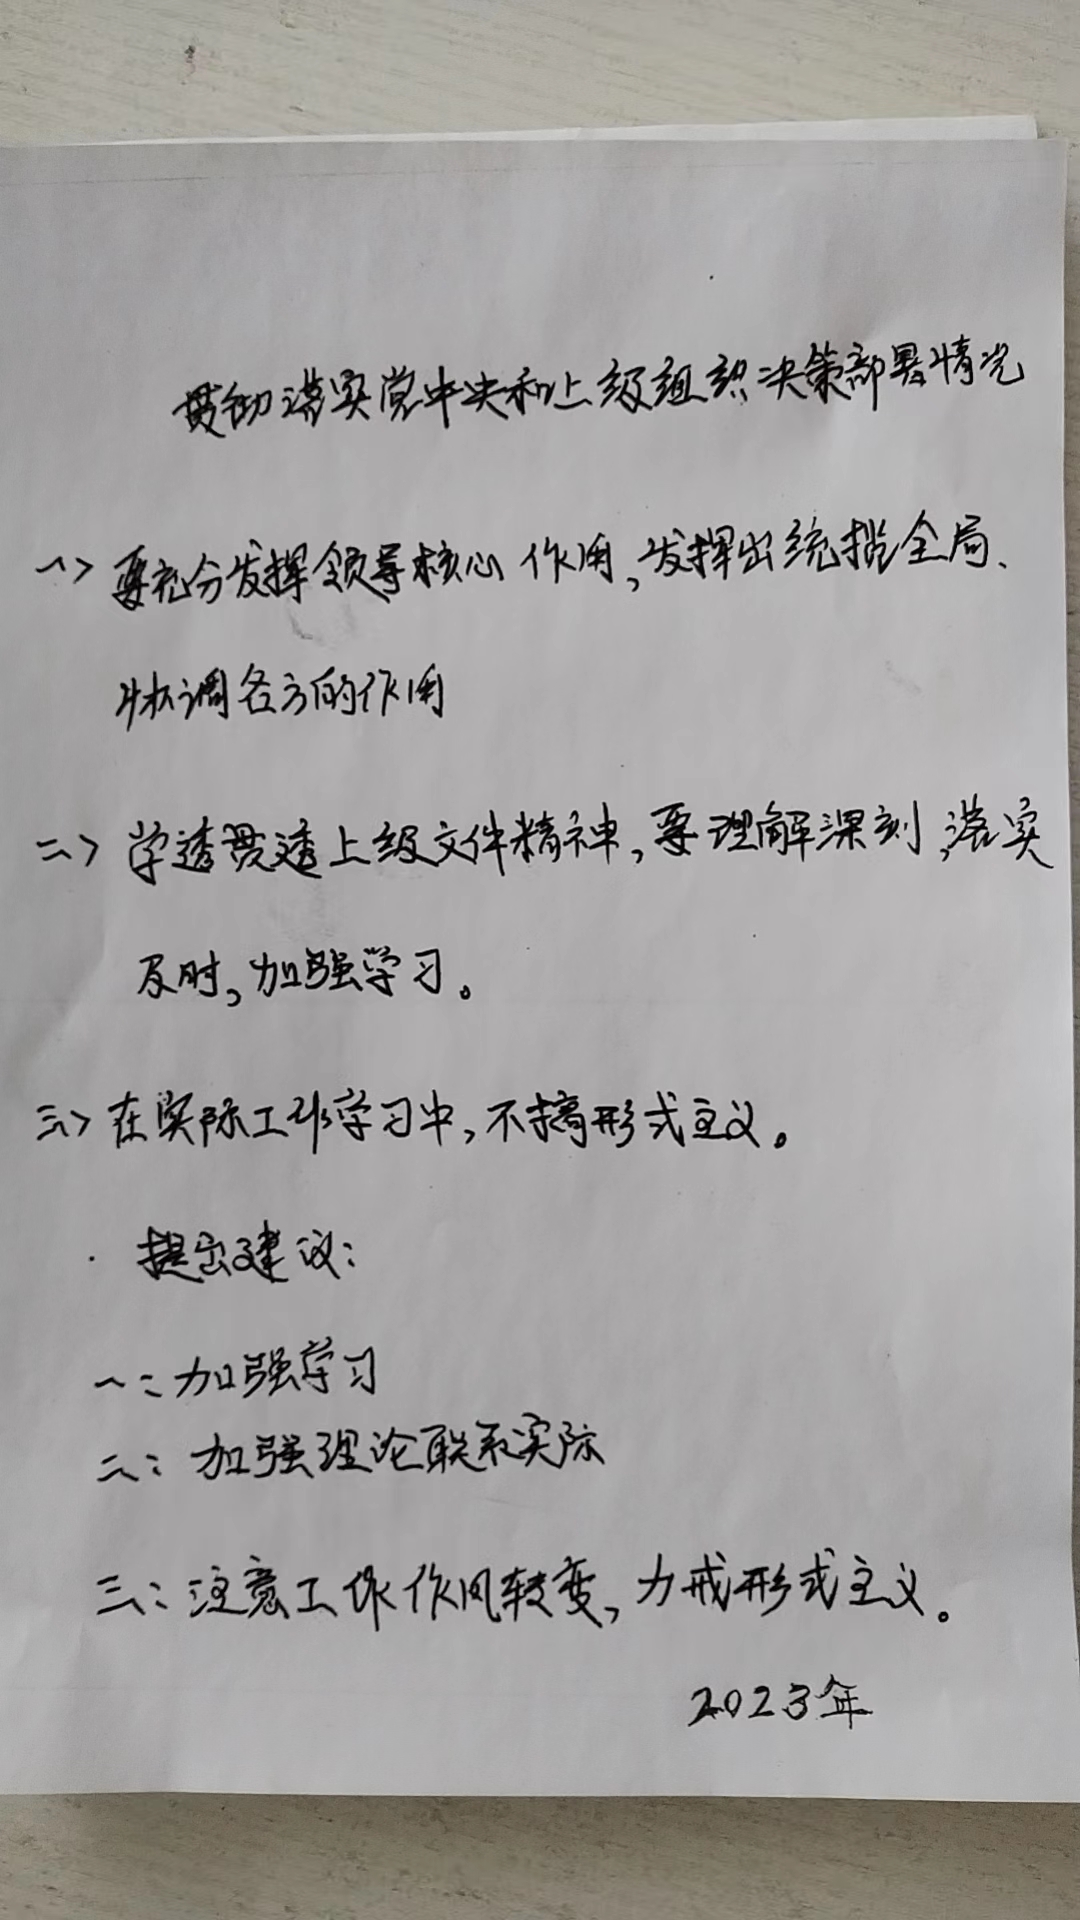 贯彻落实党中央和上级组织决策部署情况
一> 要充分发挥领导核心作用,发挥出统揽全局、
协调各方的作用
二> 学透贯透上级文件精神,要理解深刻,落实
及时,加强学习。
三> 在实际工作学习中,不搞形式主义。
提出建议:
一:加强学习
二:加强理论联系实际
三:注意工作作风转变,力戒形式主义。
2023年